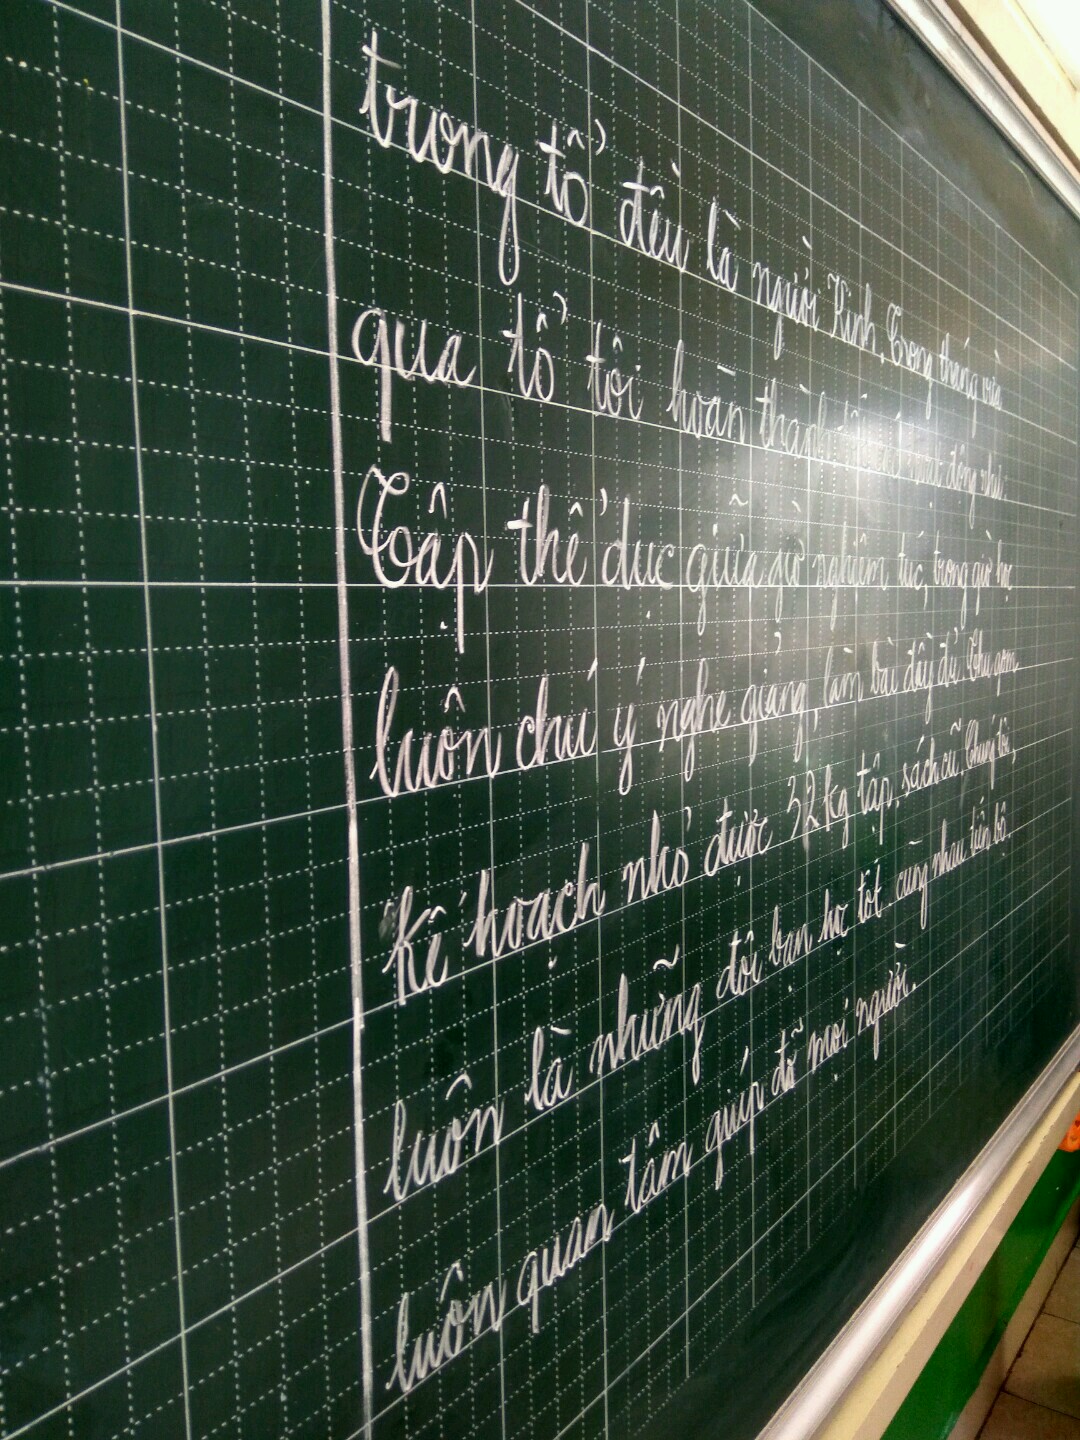 trong tổ đều là người Kinh. Trong tháng vừa
qua tổ tôi hoàn thành động như:
Tập thể dục giữa giờ nghiêm túc, trong giờ học
luôn chú ý nghe giảng, làm bài đầy đủ. Thu gom
Kế hoạch nhỏ được 32kg tập, sách cũ. Chúng tôi,
luôn là những đôi bạn học tốt cùng nhau tiến bộ.
luôn quan tâm giúp đỡ mọi người.